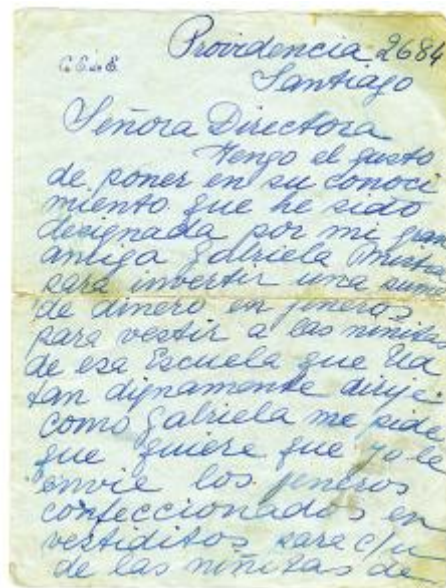 Providencia 2684
Santiago
Señora Directora
Tengo el gusto
de poner en su conoci
miento que he sido
designada por mi gran
amiga Gabriela Mistral
para invertir una suma
de dinero en jeneros
para vestir a las niñitas
de esa Escuela que Ud
tan dignamente dirije.
como Gabriela me pide
que quiere que yo le
envie los jeneros
confeccionados en
vestiditos para c/u
de las niñitas de